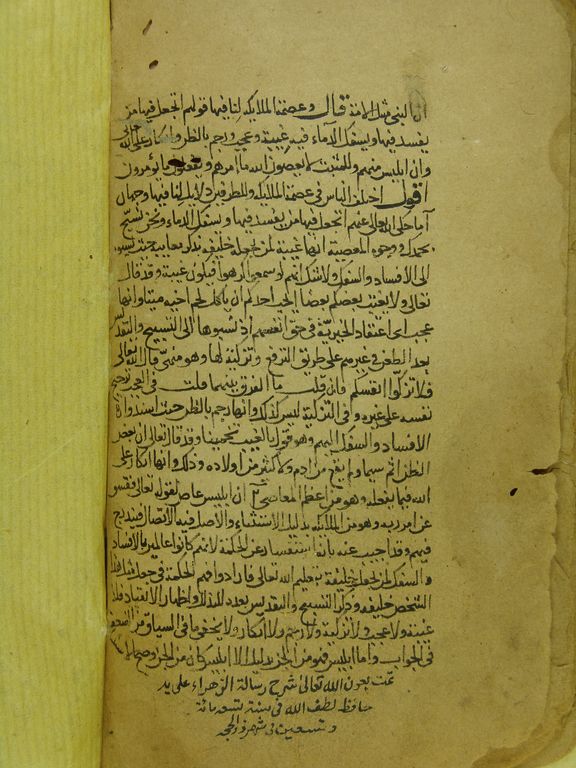 ان النبي مثل الامة قال وعصمة الملايكة لنا فيها قولهم اتجعل فيها من
يفسد فيها ويسفك الدماء فيه غيبة وعجب ورجم بالظن وانكار على الله
وان ابليس منهم وللمثبت لا يعصون الله ما امرهم ويفعلون ما يؤمرون
اقول اختلف الناس في عصمة الملايكة وللطرفين دلايل لنا فيها وجهان
آ ما حكى الله تعالى عنهم اتجعل فيها من يفسد فيها ويسفك الدماء ونحن نسبح
بحمدك ووجوه المعصية انها غيبة لمن يجعله خليفة بذكر معايبه حيث نسبوه
الى الافساد والسفك ولا شك انهم لو سمعوا لكرهوا فيكون غيبة وقد قال
تعالى ولا يغتب بعضكم بعضا ايحب احدكم ان ياكل لحم اخيه ميتا وانها
عجب اى اعتقاد الخيرية في حق انفسهم اذ نسبوها الى التسبيح والتقديس
بعد الطعن في غيرهم على طريق الترفع وتزكية لها وهو منهى قال الله تعالى
فلا تزكوا انفسكم فان قلت ما الفرق بينهما قلت في العجب ترجيح
نفسه على غيره وفي التزكية ليس كذلك وانها رجم بالظن حيث اسندوا
الافساد والسفك اليهم وهو قول بالغيب تخمينا وقد قال تعالى ان بعض
الظن اثم سيما ولم يقع من ادم ولا كثير من اولاده وذلك وانها انكار على
الله فيما يفعله وهو من اعظم المعاصي ب ان ابليس عاص لقوله تعالى ففسق
عن امر ربه وهو من الملائكة بدليل الاستثناء والاصل فيه الاتصال فيندرج
فيهم وقد اجيب عنه بانها استفسار عن الحكمة لانهم كانوا عالمين بالافساد
والسفك لمن يجعل خليفة بتعليم الله تعالى فارادوا فهم الحكمة في جعل مثل هذا
الشخص خليفة وذكر التسبيح والتقديس بصدد المذلة واظهار الانقياد فلا
غيبة ولا عجب ولا تزكية ولا رجم ولا انكار ولا يخفى ما في السياق من الضعف
في الجواب واما ابليس فهو من الجن بدليل الا ابليس كان من الجن وصح
تمت بعون الله تعالى شرح رسالة الزهراء على يد
حافظ لطف الله في سنة تسعمائة
وتسعين في شهر ذو الحجة